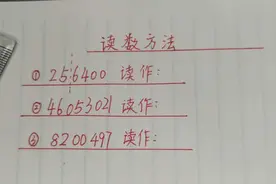 读数方法
① 256400 读作:
② 46053021 读作:
③ 8200497 读作: